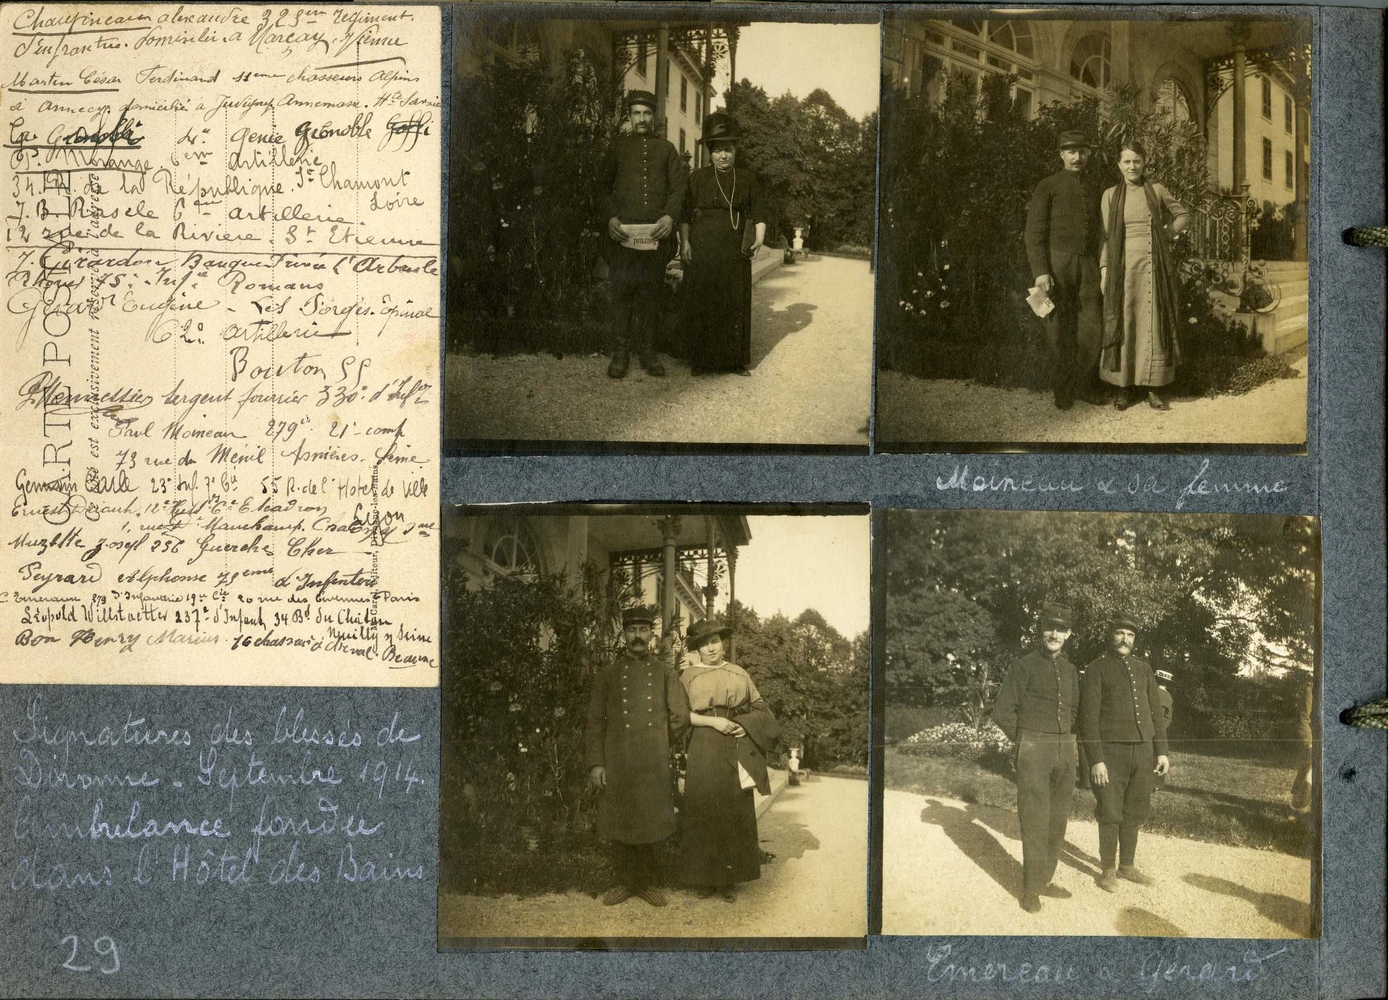 Chaupineau alexandre 325eme régiment.
d'infantrie. domicilié. a Marçay. Vienne
Martin César Ferdinand 11eme chasseurs Alpins
à annecy, domicilié a Juvigny, Annemasse. Hte Savoie
4e Genie Grenoble
Morange. 6eme Artillerie
34. R. de la République. St Chamont
Loire
J. B. Rascle 6eme artillerie
12 rue de la Rivière. St Etienne
J. Girardon Banque Privée l'Arbresle
Rhône 75e Infie Romans
Gérard Eugène - Les Forges. Epinal
62e artillerie
Bouton
sergent fourrier 330e d'Infie
Paul Moineau 279e. 21e comp
73 rue du Ménil Asnières. Seine
Germain Carle 23e Inf 7e Cie 55 R. de l'Hotel de Ville
Lyon
Muzette Joseph 256 Guerche Cher
Peyrard Alphonse 75eme d'Infanterie
C. Emereau 279 d'Infanterie 19e Cie 20 rue des Paris
Léopold Willstaetter 237e d'Infant. 34 Bd du Château
Neuilly s/ Seine
Bon Henry Marius. 16 chasseurs à cheval. Beaune
CARTE POSTALE
Ce côté est exclusivement réservé à l'adresse
Signatures des blessés de
Divonne - Septembre 1914.
Ambulance fondée
dans l'Hôtel des Bains
29
Moineau & sa femme
Emereau & Gérard